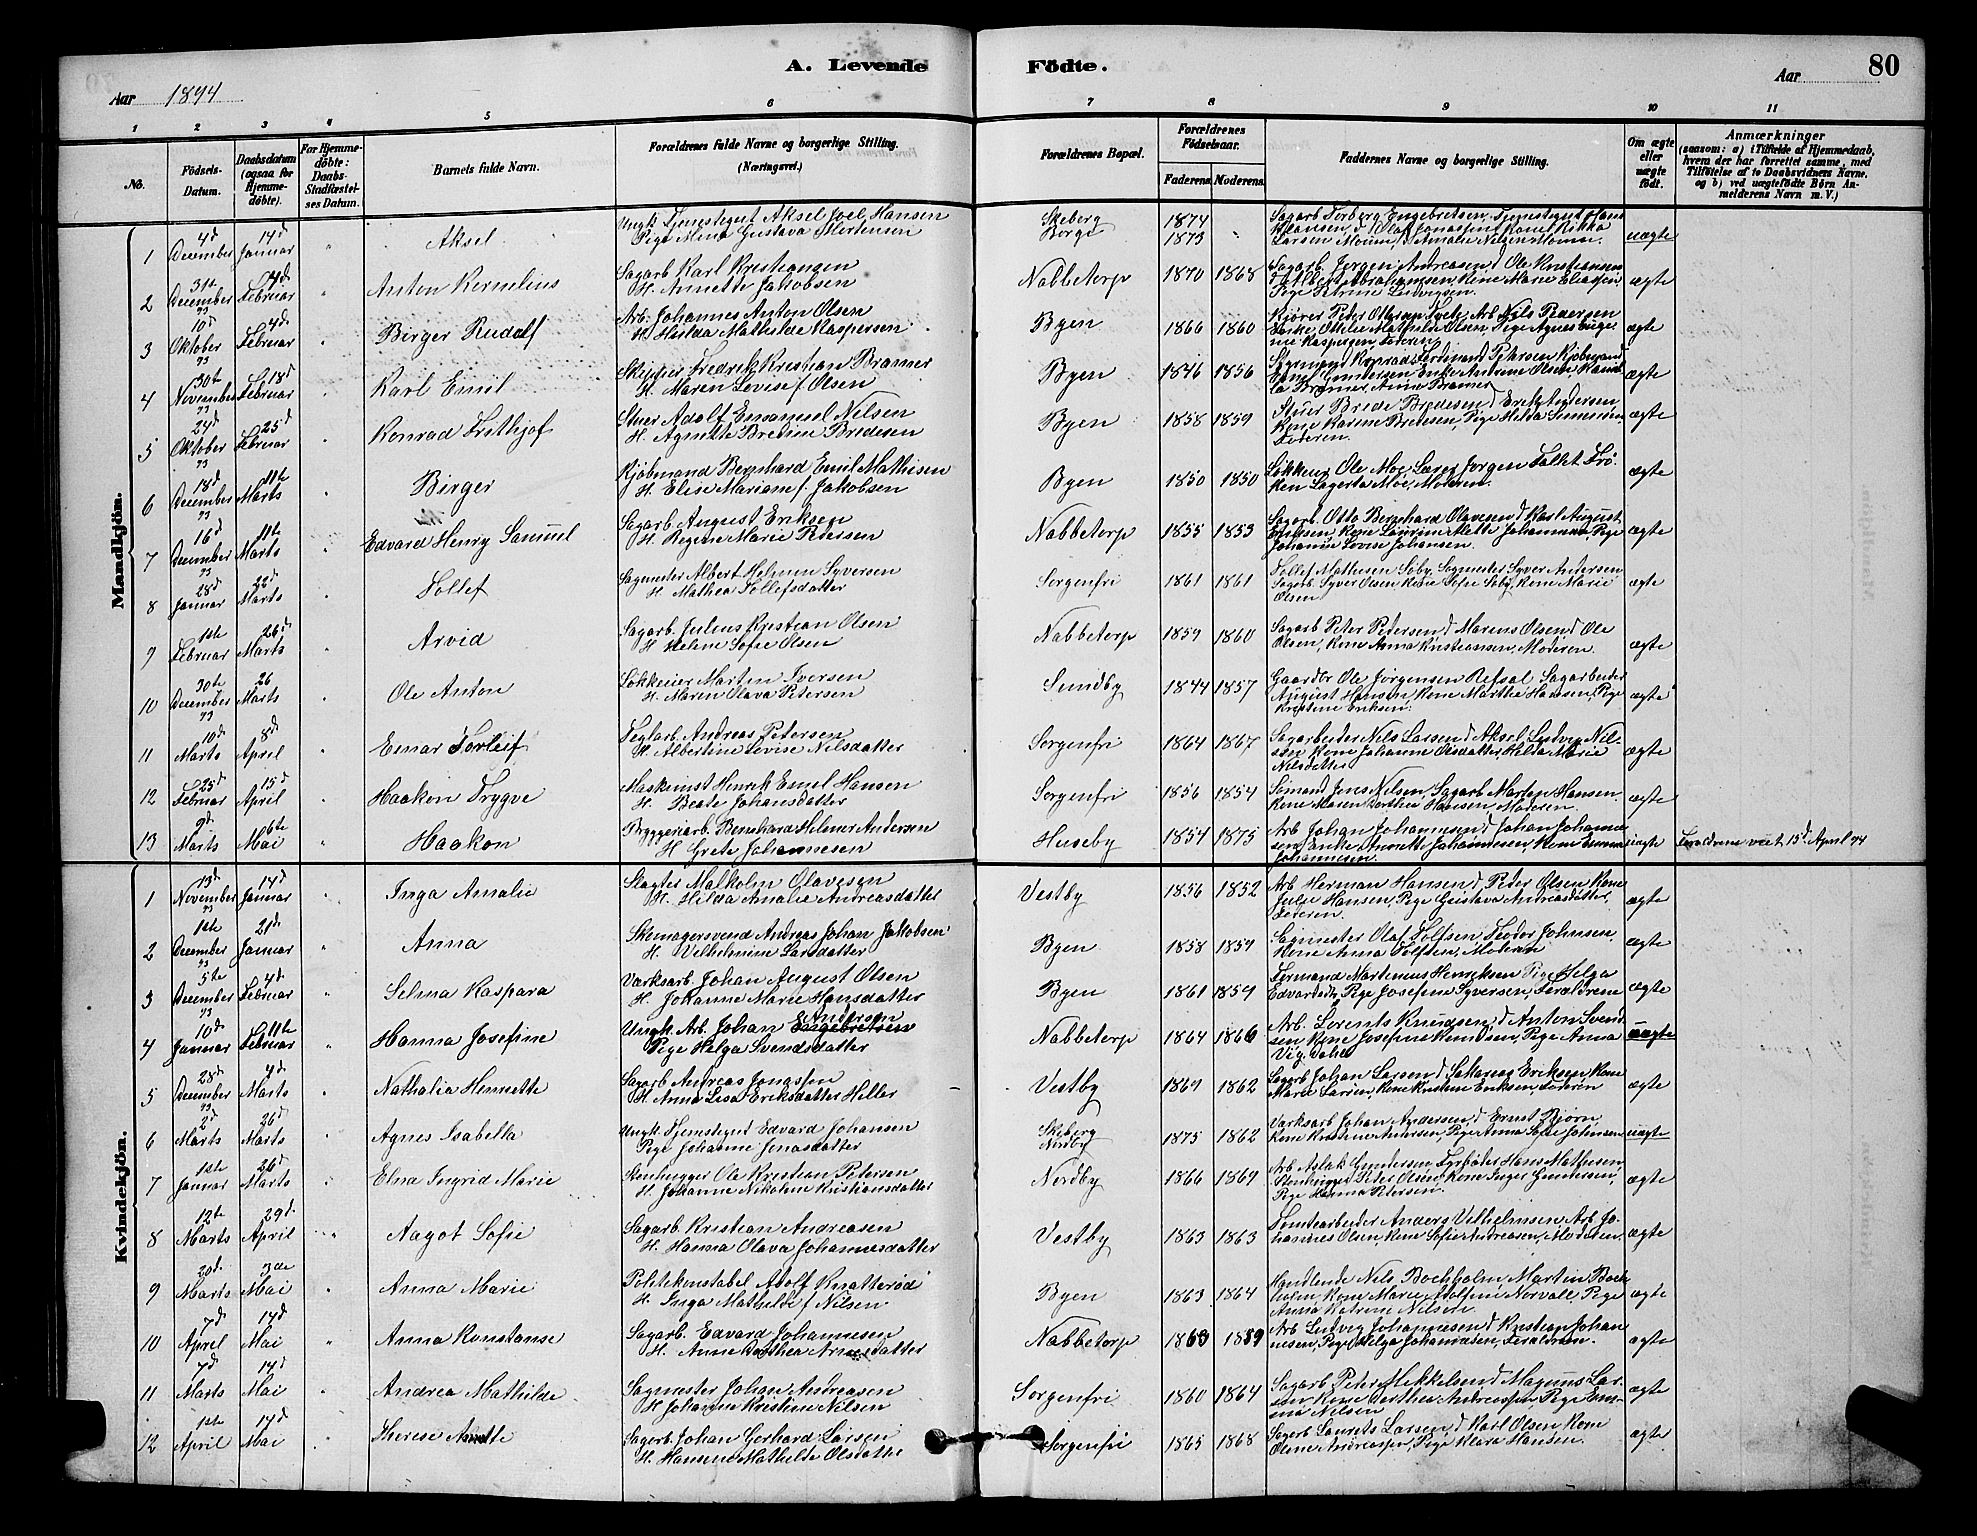 A. Levende Födte. 80
Aar 1894 Aar
1 2 3 4 5 6 7 8 9 10 11
No. Födsels-Datum. Daabsdatum (ogsaa for Hjemmedöbte). For Hjemmedöbte: Daabs-Stadfæstelses Datum. Barnets fulde Navn. Forældrenes fulde Navne og borgerlige Stilling. (Næringsvei.) Forældrenes Bopæl. Forældrenes Födselsaar. Faderens. Moderens. Faddernes Navne og borgerlige Stilling. Om ægte eller uægte födt. Anmærkninger (saasom: a) i Tilfælde af Hjemmedaab, hvem der har forrettet samme, med Tilföielse af to Daabsvidners Navne, og b) ved uægtefödte Börn Anmelderens Navn m. V.)
Mandkjön.
1 4d December 14d Januar " Aksel Ungk. Tjenestegut Aksel Joel Hansen
Pige Mina Gustava Mortensen Skeberg Borge 1874 1873 " uægte
2 31te December 93 4d Februar " Anton Kornelius Sagarb. Karl Kristiansen
H. Annette Jakobsen Nabbetorp 1870 1868 Sagarb. Jörgen Andreasen, d Ole Kristiansen ægte
3 10d Oktober 93 4d Februar " Birger Rudolf Arb. Johannes Anton Olsen
H. Hilda Mathilde Kaspersen Byen 1866 1860 ægte
4 30te November 93 18d Februar " Karl Emil Skipper Fredrik Kristian Bramer
H. Maren Lovise f. Olsen Byen 1846 1856 ægte
5 24d Oktober 93 25d Februar " Konrad Frithjof Stuer Adolf Emanuel Nilsen
H. Agnette Bredine Bredesen Byen 1858 1859 Stuer Brede Bredesen, d Erik Andersen ægte
6 18d December 93 11te Marts " Birger Kjöbmand Bernhard Emil Mathisen
H. Elise Mariane f. Jakobsen Byen 1850 1850 Lökkeier Ole Moe, Lærer Jörgen Tollef Frö-
ken Lagerta Moe, Moderen. ægte
7 16d December 93 11te Marts " Edvard Henry Samuel Sagarb. August Eriksen
H. Regine Marie Pedersen Nabbetorp 1855 1853 Sagarb. Otto Bernhard Olavesen, d Karl August
Eriksen, Kone Laurine Mette Johannesen, Pige
Johanne Lovise Johansen. ægte
8 28d Januar 22d Marts " Tollef Sagmester Albert Helmer Syversen
H. Mathea Tollefsdatter Sorgenfri 1861 1861 Tollef Mathisen Söby, Sagmester Syver Andersen
Sagarb. Syver Olsen, Kone Sofie Söby, Kone Marie
Olsen ægte
9 1ste Februar 26d Marts " Arvid Sagarb. Julius Kristian Olsen
H. Helene Sofie Olsen Nabbetorp 1859 1860 Sagarb. Peter Pedersen, d Marius Olsen, d Ole
Olsen, Kone Anna Kristiansen, Moderen. ægte
10 30te December 93 26 Marts " Ole Anton Lökkeeier Martin Iversen
H. Maren Olava Petersen Sundby 1844 1857 Gaardbr. Ole Jörgensen Refsal Sagarbeider
August Hansen, Kone Marthe Hansen, Pige
Kristine Eriksen. ægte
11 10d Marts 8d April " Einar Torleif Teglarb. Andreas Petersen
H. Albertine Lovise Nilsdatter Sorgenfri 1864 1867 Sagarbeider Nils Larsen, d Aksel Ludvig Nil-
sen, Kone Johanne Olsdatter, Hilda Marie
Nilsdatter ægte
12 25d Februar 15d April " Haakon Trygve Maskinist Henrik Emil Hansen
H. Beate Johansdatter Sorgenfri 1856 1854 Sömand Jens Nilsen, Sagarb. Martin Hansen.
Kone Maren Dorthea Hansen, Moderen. ægte
13 9d Marts 6te Mai " Haakon Bryggeriarb. Bernhard Helmer Andersen
H. Grete Johannesen Huseby 1854 1875 uægte Forældrene viet 15d April 94
Kvindekjön.
1 13d November 93 14d Januar " Inga Amalie Slagter Malkolm Olavesen
H. Hilda Amalie Andreasdatter Vestby 1856 1852 Arb. Herman Hansen, d Peter Olsen Kone
Julie Hansen, Pige Gustava Andreasdatter,
Föderen. ægte
2 1ste December 93 21d Januar " Anna Skomagersvend Andreas Johan Jakobsen
H. Vilhelmine Larsdatter Byen 1858 1859 ægte
3 5te December 93 4d Februar " Selma Kaspara Værksarb. Johan August Olsen
H. Johanne Marie Hansdatter Byen 1861 1859 Formand Martinius Henriksen Pige Helga
Edvardsdtr, Pige Josefine Syversen, Forældrene ægte
4 10d Januar 11te Februar " Hanna Josefine Ungk. Arb. Johan Engebretsen Andersen
Pige Helga Svendsdatter Nabbetorp 1864 1866 Arb. Lorents Knudsen, d Anton Svend-
sen Kone Josefine Knudsen, Pige Anna uægte
5 28d December 93 4d Marts " Nathalia Henriette Sagarb. Andreas Jonassen
H. Anna Lisa Eriksdatter Heller Vestby 1869 1862 Sagarb. Johan Larsen, d Sakarias Eriksen Kone
Marie Larsen, Kone Kristine Eriksen, Föderen ægte
6 2d Marts 26d Marts " Agnes Isabella Ungk. Tjenestegut Edvard Johansen
Pige Johanne Jonasdatter Skeberg Nordby 1875 1862 Værksarb. Johan Andersen, d Ernst Björn,
Kone Kristine Andersen, Pige Anna Sofie Johansen uægte
7 1ste Januar 26d Marts " Elna Ingrid Marie Stenhugger Ole Kristian Petersen
H. Johanne Nikoline Kristiansdatter Nordby 1866 1869 Arb. Aslak Gundersen, Fyrböder Hans Mathisen,
Stenhugger Peter Olsen, Kone Inger Gundersen,
Pige Hanna Petersen. ægte
8 12te Marts 29d April " Aagot Sofie Sagarb. Kristian Andreasen
H. Hanna Olava Johannesdatter Vestby 1863 1863 Tomtearbeider Anders Vilhelmsen Arb. Jo-
hannes Olsen, Kone Sofie Andreasen, Moderen. ægte
9 20d Marts 3de Mai " Anna Marie Politikonstabel Adolf Knatteröd
H. Inga Mathilde f. Nilsen Byen 1863 1864 Handlende Nils Bockholm, Martin Bock-
holm, Kone Marie Adolfine Norvald, Pige
Anna Katrine Nilsen. ægte
10 7d April 14d Mai " Anna Konstanse Sagarb. Edvard Johannesen
H. Anne Dorthea Arnesdatter Nabbetorp 1860 1859 Arb. Ludvig Johannesen, d Kristian Johan-
nesen, Pige Helga Johannesen, Forældrene. ægte
11 7d Marts 14d Mai " Andrea Mathilde Sagmester Johan Andreasen
H. Johanne Kristine Nilsen Sorgenfri 1860 1864 Sagarb. Peter Mekkelsen, d Magnus Lar-
sen, Kone Dorthea Andreassen Pige Em-
ma Nilsen ægte
12 1ste April 14d Mai " Therese Anette Sagarb. Johan Gerhard Larsen
H. Hansine Mathilde Olsdatter Sorgenfri 1865 1868 Sagarb. Laurets Larsen, d Karl Olsen Kone
Oline Andreassen, Pige Klara Hansen. ægte